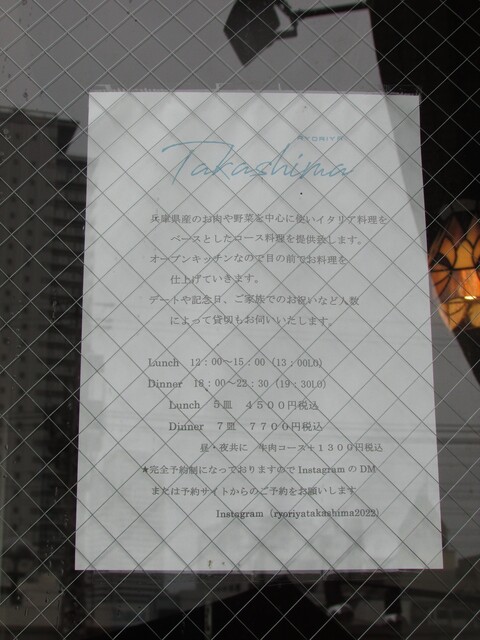 RYORIYA
Takashima
兵庫県産のお肉や野菜を中心に使いイタリア料理を
ベースとしたコース料理を提供致します。
オープンキッチンなので目の前でお料理を
仕上げていきます。
デートや記念日、ご家族でのお祝いなど人数
によって貸切もお伺いいたします。
Lunch 12：00〜15：00（13：00LO）
Dinner 18：00〜22：30（19：30LO）
Lunch 5皿 4500円税込
Dinner 7皿 7700円税込
昼・夜共に 牛肉コース＋1300円税込
★完全予約制になっておりますのでInstagramのDM
または予約サイトからのご予約をお願いします
Instagram（ryoriyatakashima2022）